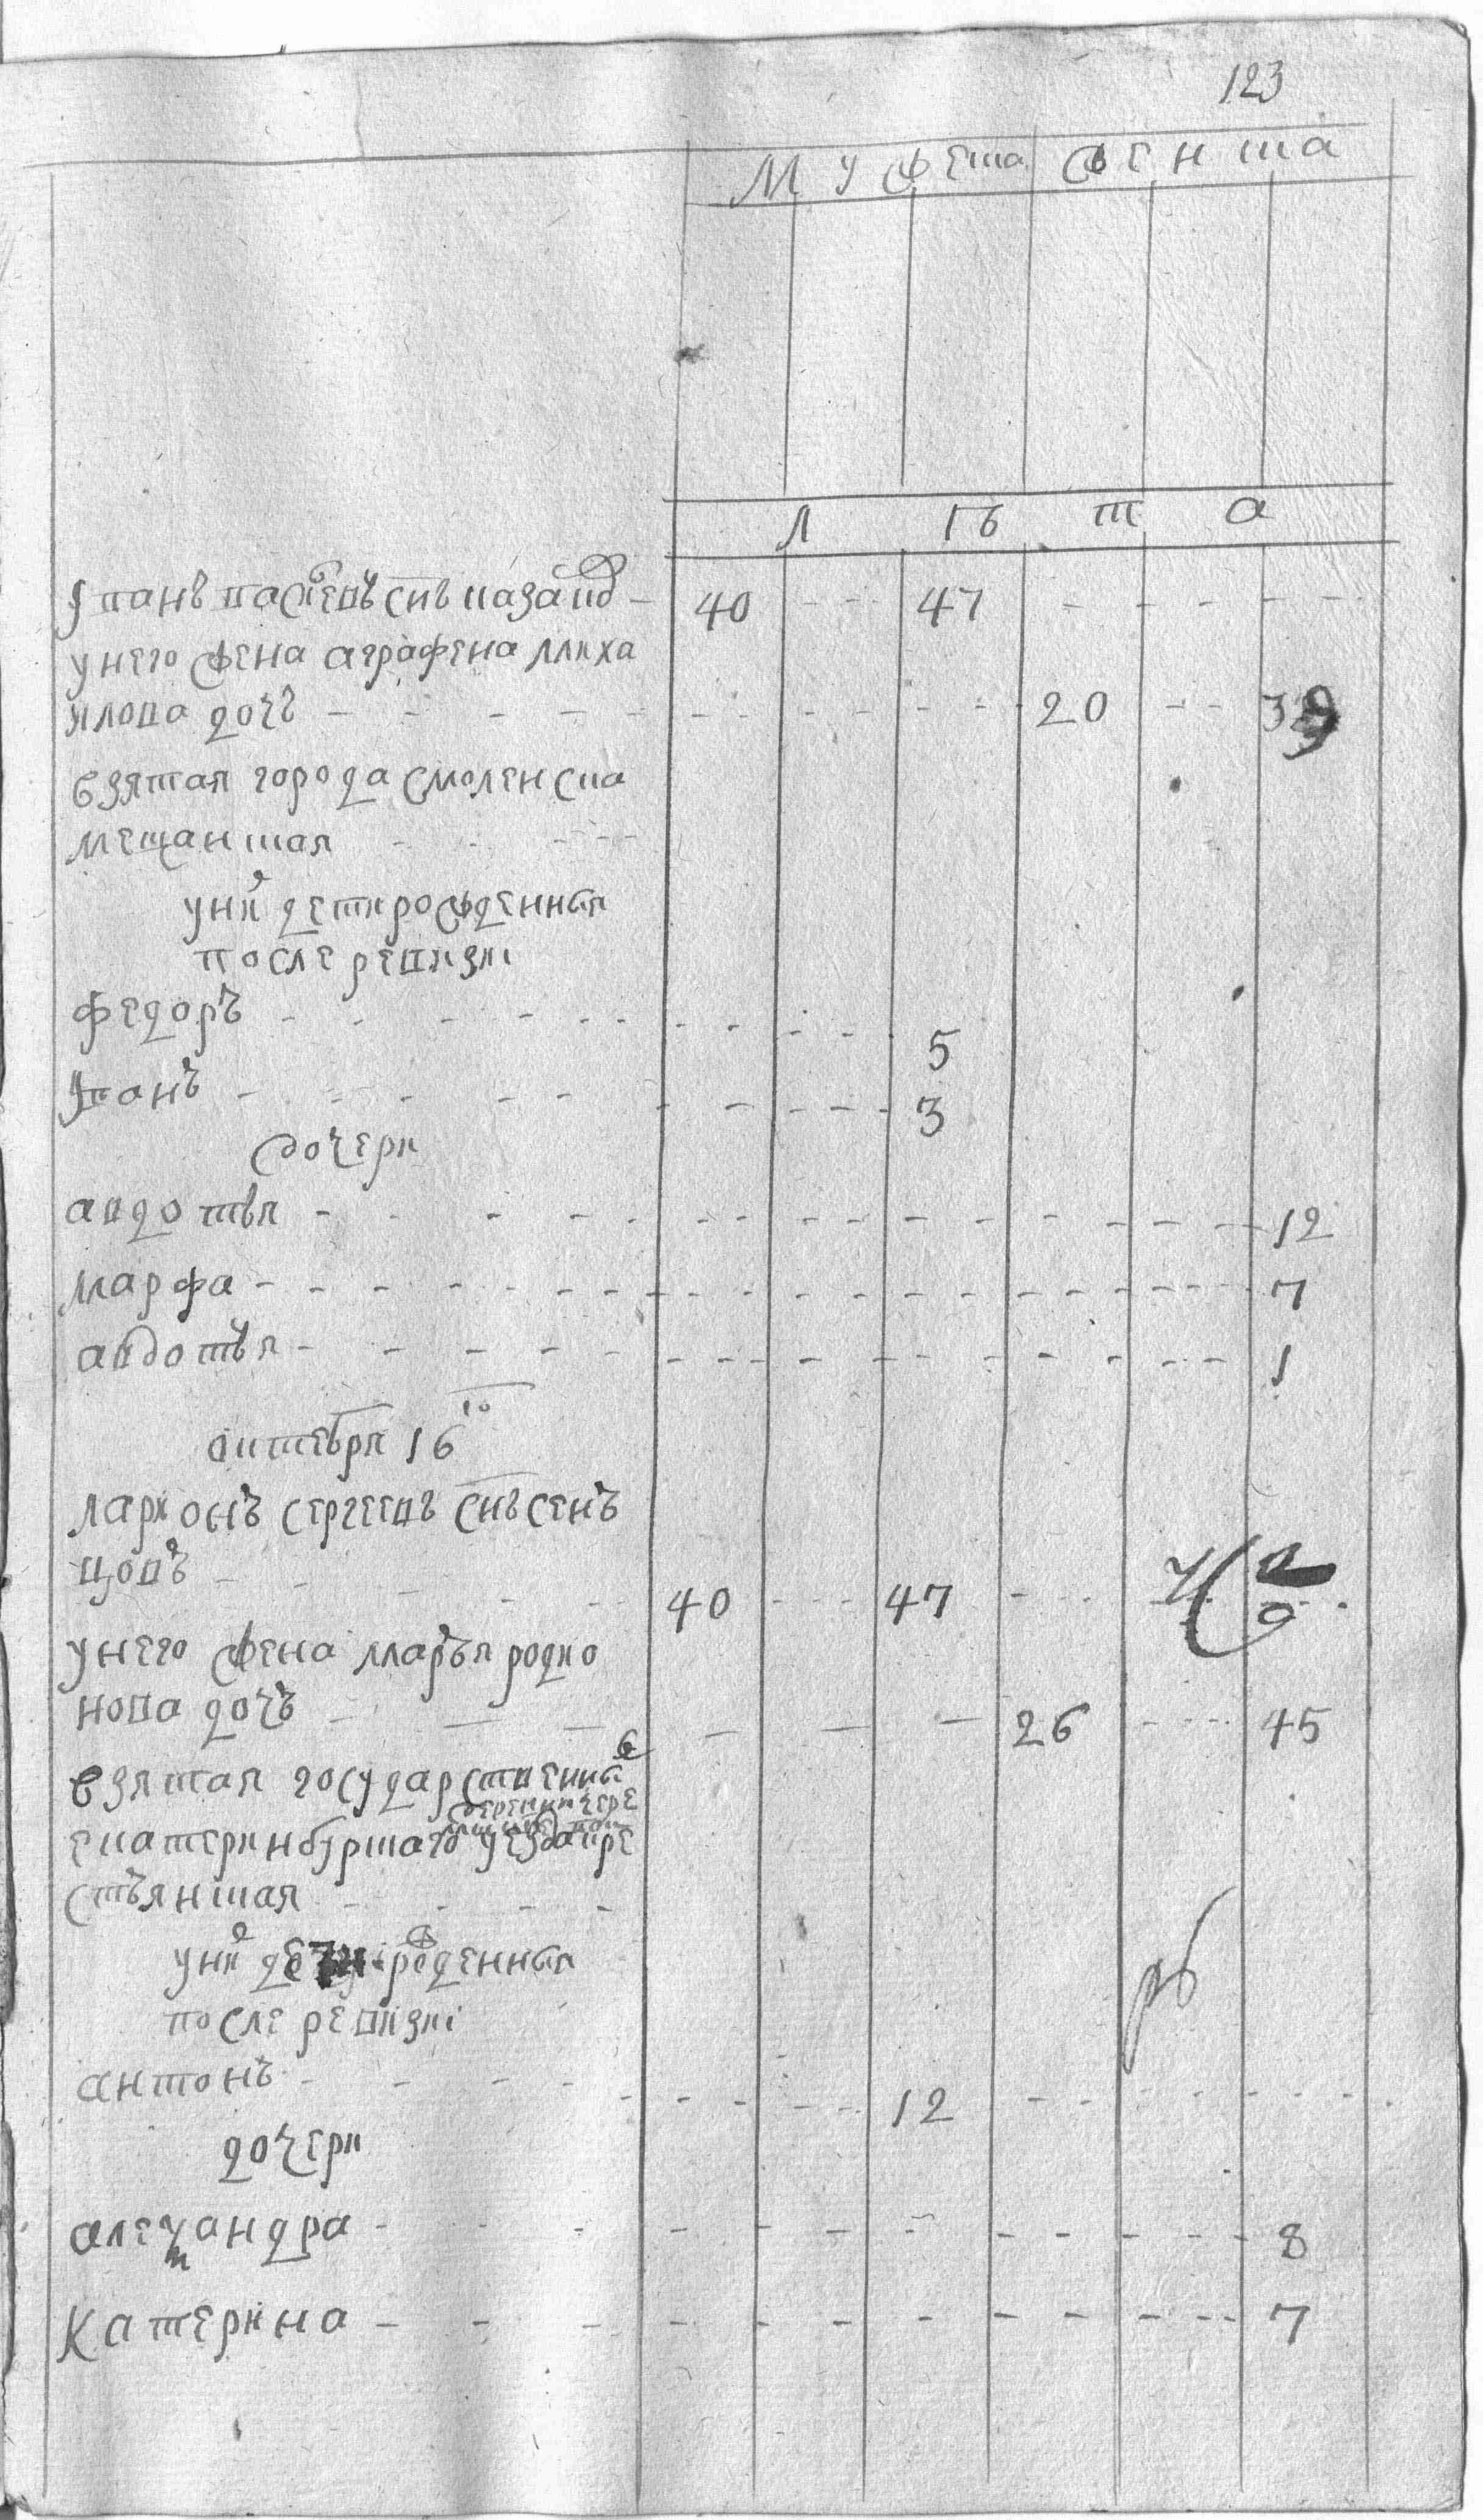 123
мужеска женска
лѣта
Іванъ васильевъ снъ казанц 40 47
унего жена аграфена миха
илова дочь 20 39
взятая города смоленска
мещанская
уних дети рожденныя
после ревизиі
федоръ 5
Іванъ 3
дочери
авдотья 12
марфа 7
авдотья 1
октебря 16го
ларионъ сергеевъ снъ сенъ
цовъ 40 47
унего жена маръя родио
нова дочь 26 45
взятая государственны
екатеринбурскаго уезда кре
стьянская
уних дети рожденныя
после ревизиі
антонъ 12
дочери
александра 8
катерина 7